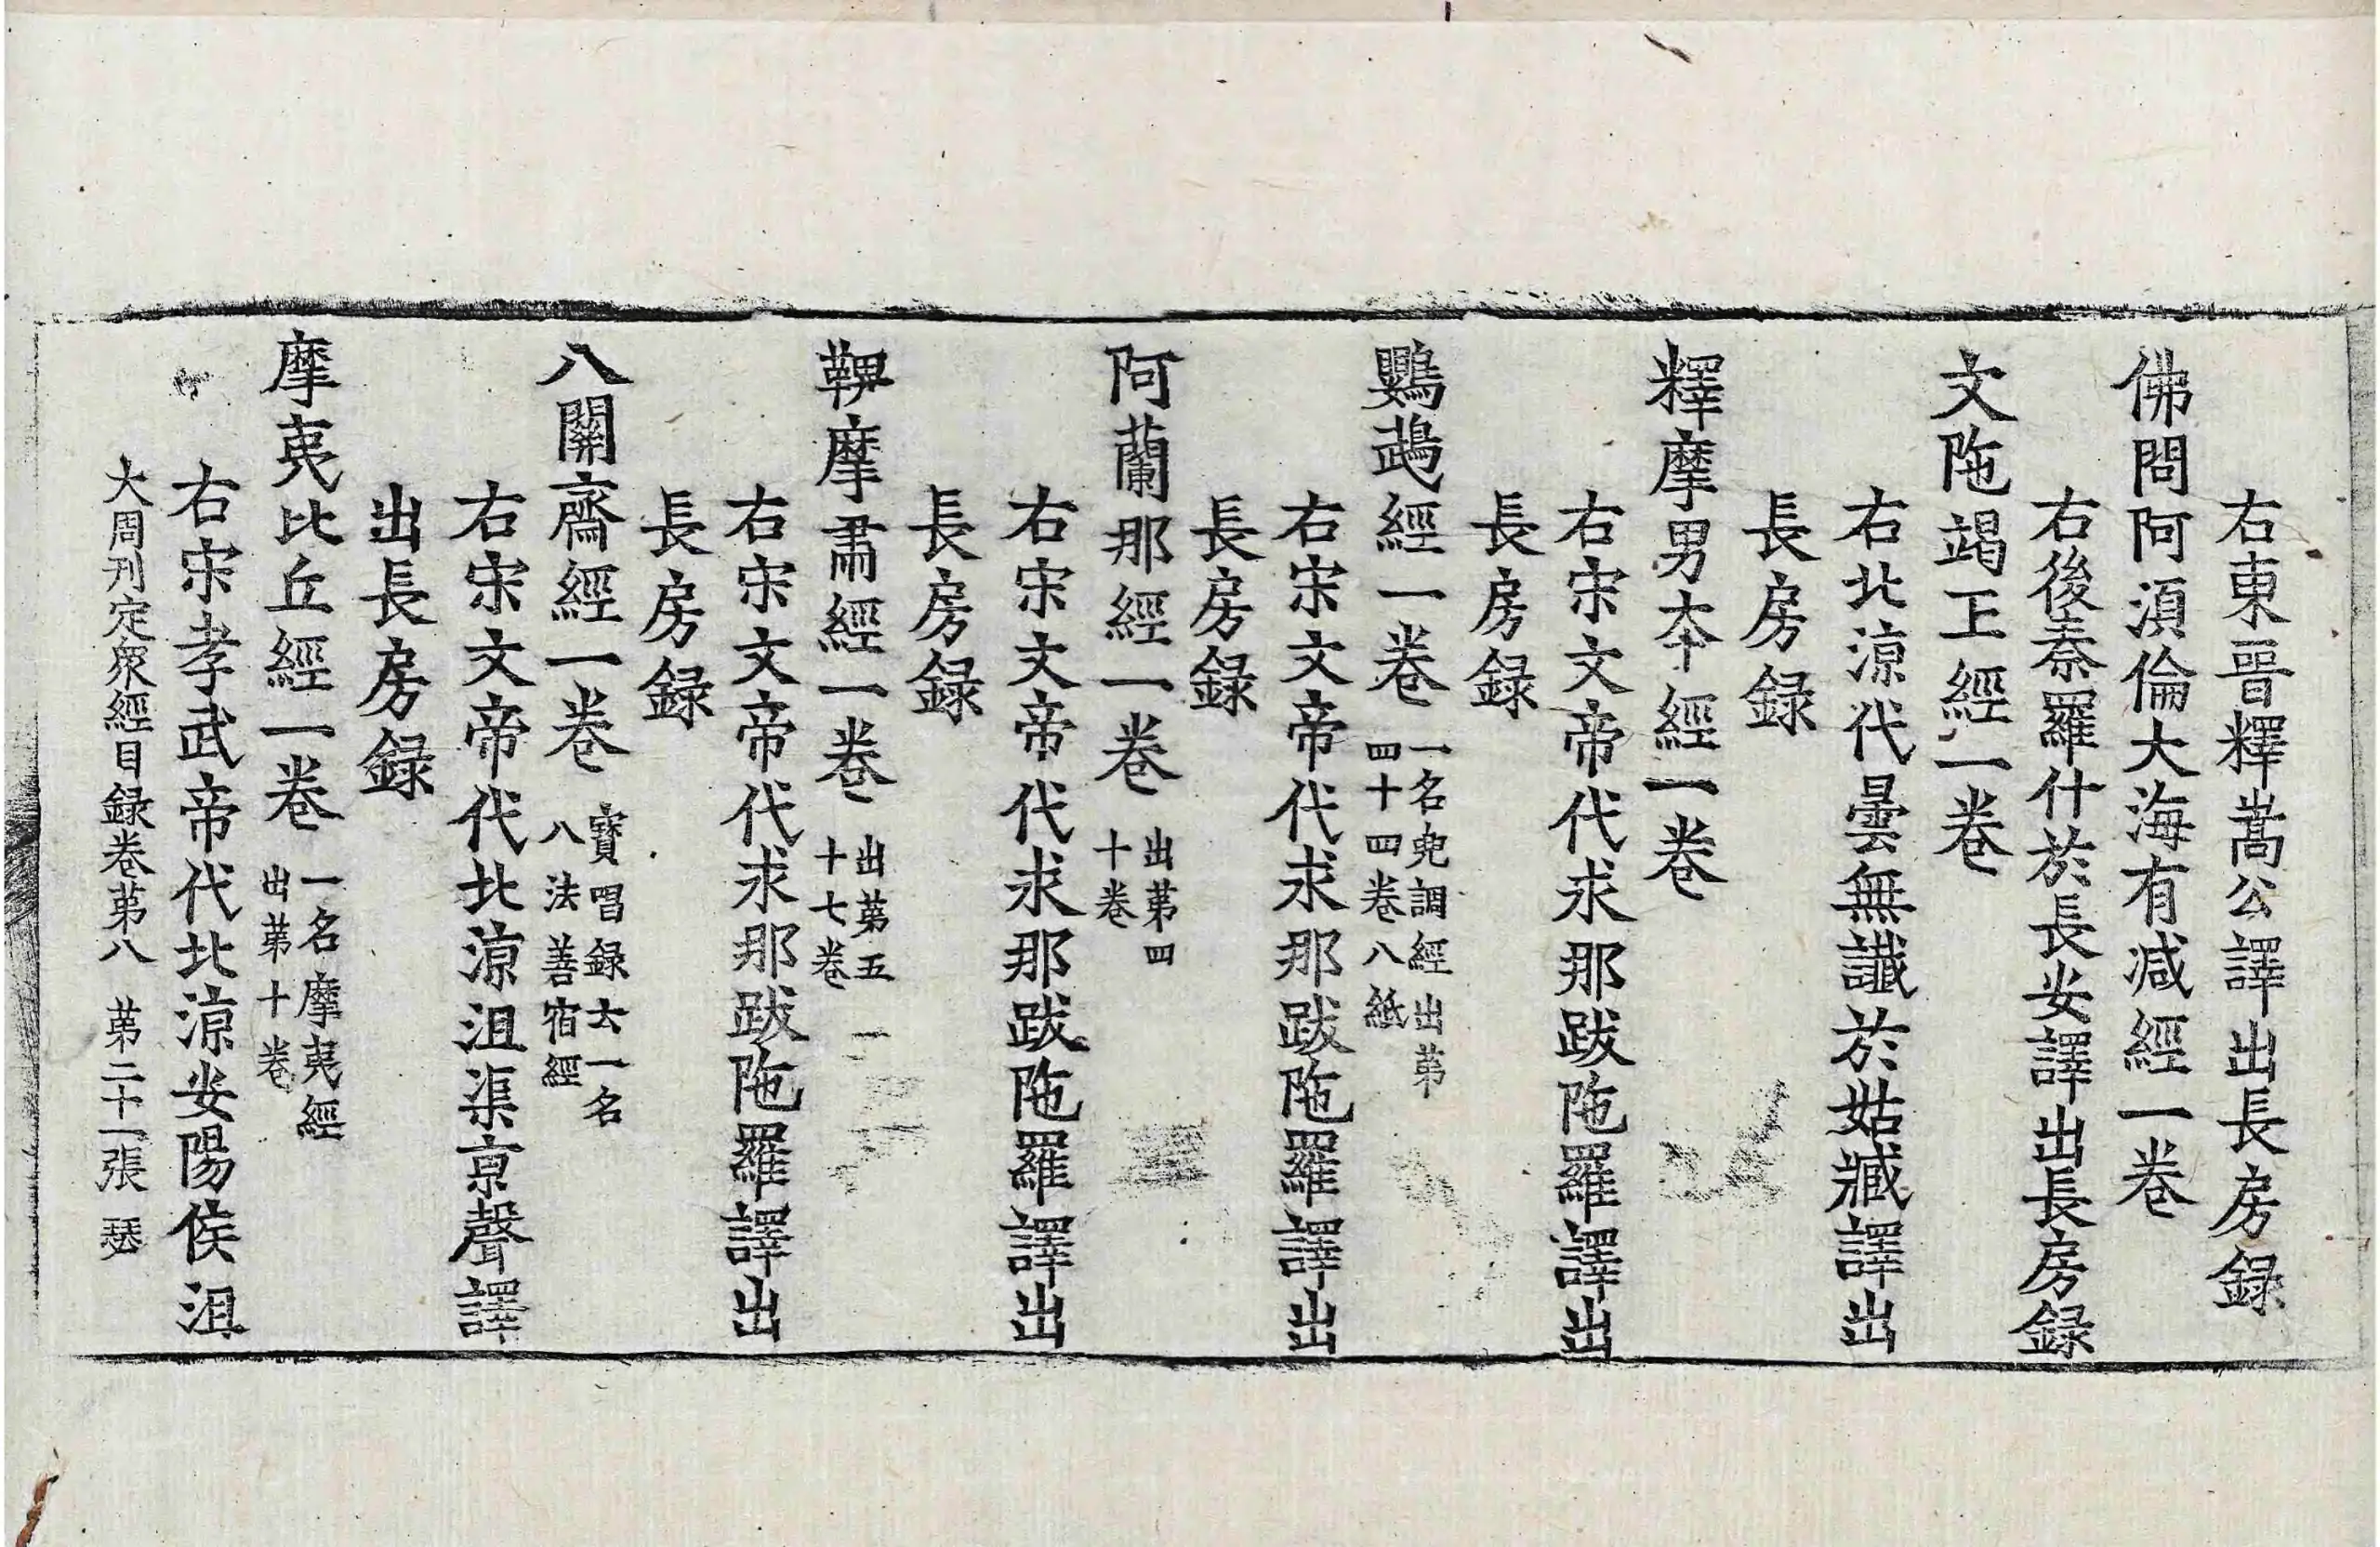 右東晉釋嵩公譯出長房錄
佛問阿湏倫大海有減經一卷
右後秦羅什於長安譯出長房錄
文陁竭王經一卷
右北涼代曇無讖於姑臧譯出
長房錄
釋摩男夲經一卷
右宋文帝代求那跋陁羅譯出
長房錄
鸚鵡經一卷
一名兜調經出第
四十四卷八紙
右宋文帝代求那跋陁羅譯出
長房錄
阿蘭那經一卷
出第四
十卷
右宋文帝代求那跋陁羅譯出
長房錄
鞞摩肅經一卷
出第五一
十七卷
右宋文帝代求那跋陁羅譯出
長房錄
八關齋經一卷
寶唱録云一名
八法善宿經
右宋文帝代北涼沮渠京聲譯
出長房錄
摩夷比丘經一卷
一名摩夷經
出第十卷
右宋孝武帝代北涼安陽侯沮
大周刊定衆經目録卷第八 第二十一張 瑟